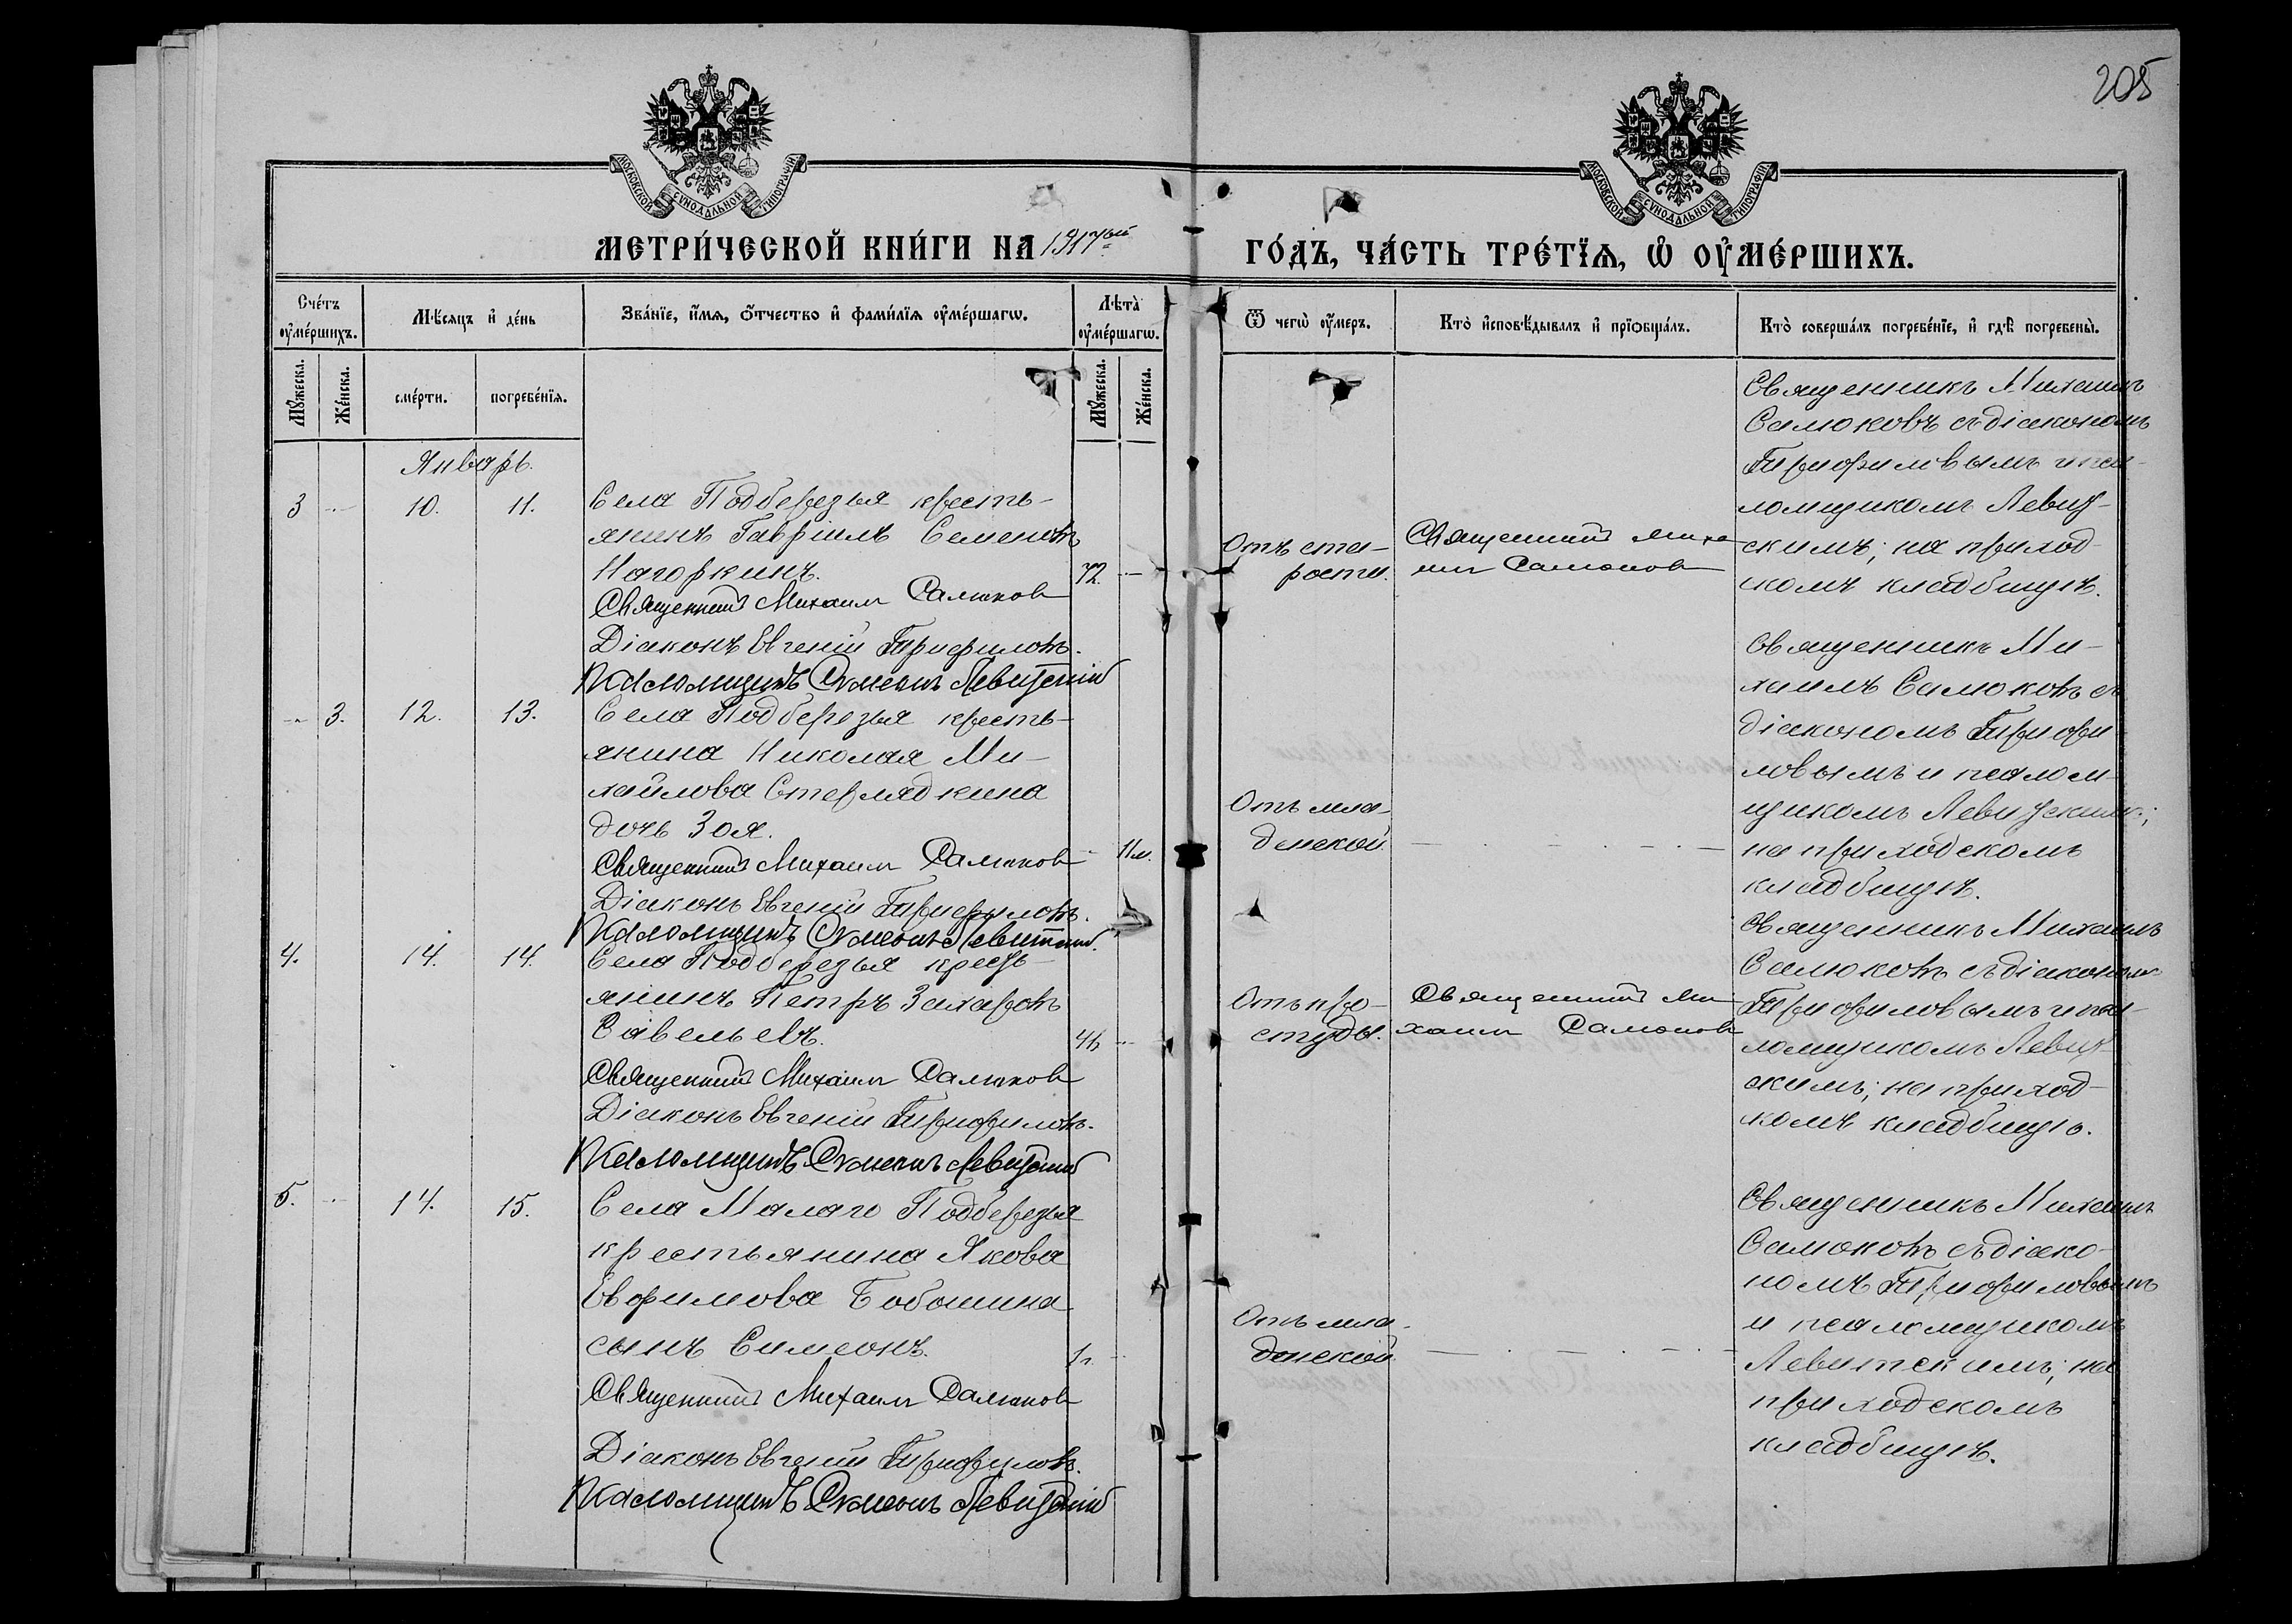 205
МОСКОВСКОЙ СУНОДАЛЬНОЙ ТИПОГРАФІИ
МОСКОВСКОЙ СУНОДАЛЬНОЙ ТИПОГРАФІИ
МЕТРИ́ЧЕСКОЙ КНИ́ГИ НА 1917ый ГО́ДЪ, ЧА́СТЬ ТРЕ́ТЇѦ, Ѡ҆ ОУ҆МЕ́РШИХЪ.
Сче́тъ оу҆ме́ршихъ.
Мѣ́сяцъ и҆ де́нь
Зва́нїе, и҆́мѧ, ѻ҆́тчество и҆ фами́лїѧ оу҆ме́ршагѡ.
Лѣта̀ оу҆ме́ршагѡ.
Ѿ чегѡ̀ оу҆́меръ.
Кто̀ и҆сповѣ́дывалъ и҆ прїѻбща́лъ.
Кто̀ соверша́лъ погребе́нїе, и҆ гдѣ̀ погребены̀.
Мꙋ́жеска.
Же́нска.
сме́рти.
погребе́нїѧ.
Мꙋ́жеска.
Же́нска.
Январь.
3 - 10. 11.
Села Подберезья кресть-
янинъ Гавріилъ Семеновъ
Нагоркинъ. 72. -
Священникъ Михаилъ Самоковъ
Діаконъ Евгеній Трифиловъ.
Псаломщикъ Симеонъ Левитскій
Отъ ста-
рости.
Священникъ Миха
илъ Самоковъ
Священникъ Михаилъ
Самоковъ съ діакономъ
Трифиловымъ и пса-
ломщикомъ Левит-
скимъ; на приход-
комъ кладбищѣ.
- 3. 12. 13.
Села Подберезья кресть-
янина Николая Ми-
хайлова Стерлядкина
дочь Зоя. - 11м.
Священникъ Михаилъ Самоковъ
Діаконъ Евгеній Трифиловъ.
Псаломщикъ Симеонъ Левитскій.
Отъ мла-
денской
Священникъ Ми-
хаилъ Самоковъ съ
діакономъ Трифи
ловымъ и псалом-
щикомъ Левитскимъ;
на приходскомъ
кладбищѣ.
4. 14. 14.
Села Подберезья кресть-
янинъ Петръ Захаровъ
Савельевъ. -
Священникъ Михаилъ Самоковъ
Діаконъ Евгеній Трифиловъ.
Псаломщикъ Симеонъ Левитскій
Отъ про-
студы.
Священникъ Ми
хаилъ Самоковъ
Священникъ Михаилъ
Самоковъ съ діакономъ
Трифиловымъ и пса-
ломщикомъ Левит-
скимъ; на приход-
комъ кладбищѣ.
5. - 14. 15.
Села Малаго Подберезья
крестьянина Якова
Евфимова Бобошина
сынъ Симеонъ. 1г. -
Священникъ Михаилъ Самоковъ
Діаконъ Евгеній Трифиловъ.
Псаломщикъ Симеонъ Левитскій
Отъ мла-
денской
Священникъ Михаилъ
Самоковъ съ діако-
номъ Трифиловымъ
и псаломщикомъ
Левитскимъ; на
приходскомъ
кладбищѣ.